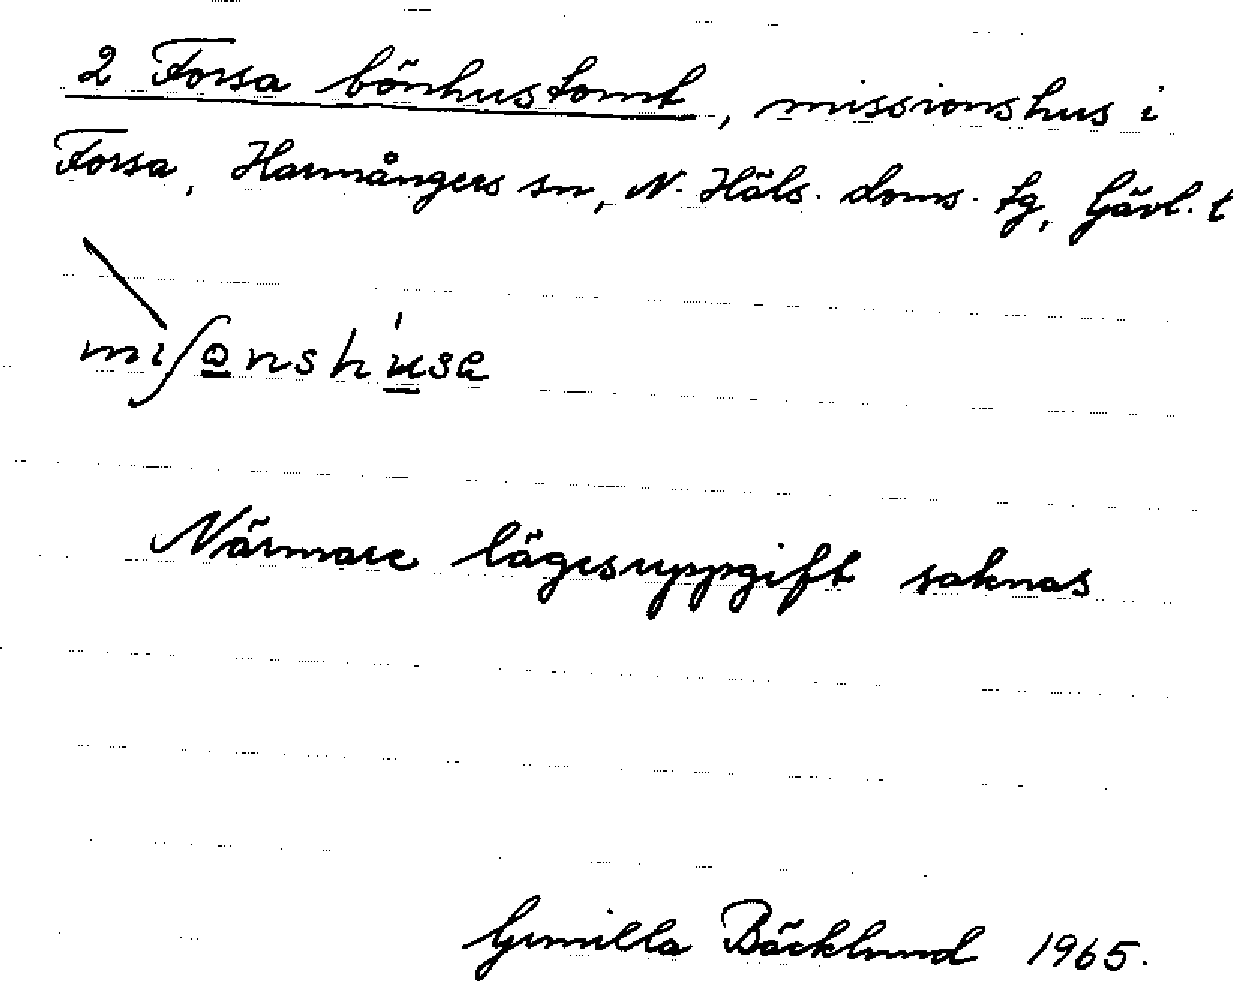 2 Forsa bönhustomt, missionshus i
Forsa, Harmångers sn, N. Häls. doms. tg, Gävl. l
miʃonshu̍se
Närmare lägesuppgift saknas
Gunilla Bäcklund 1965.